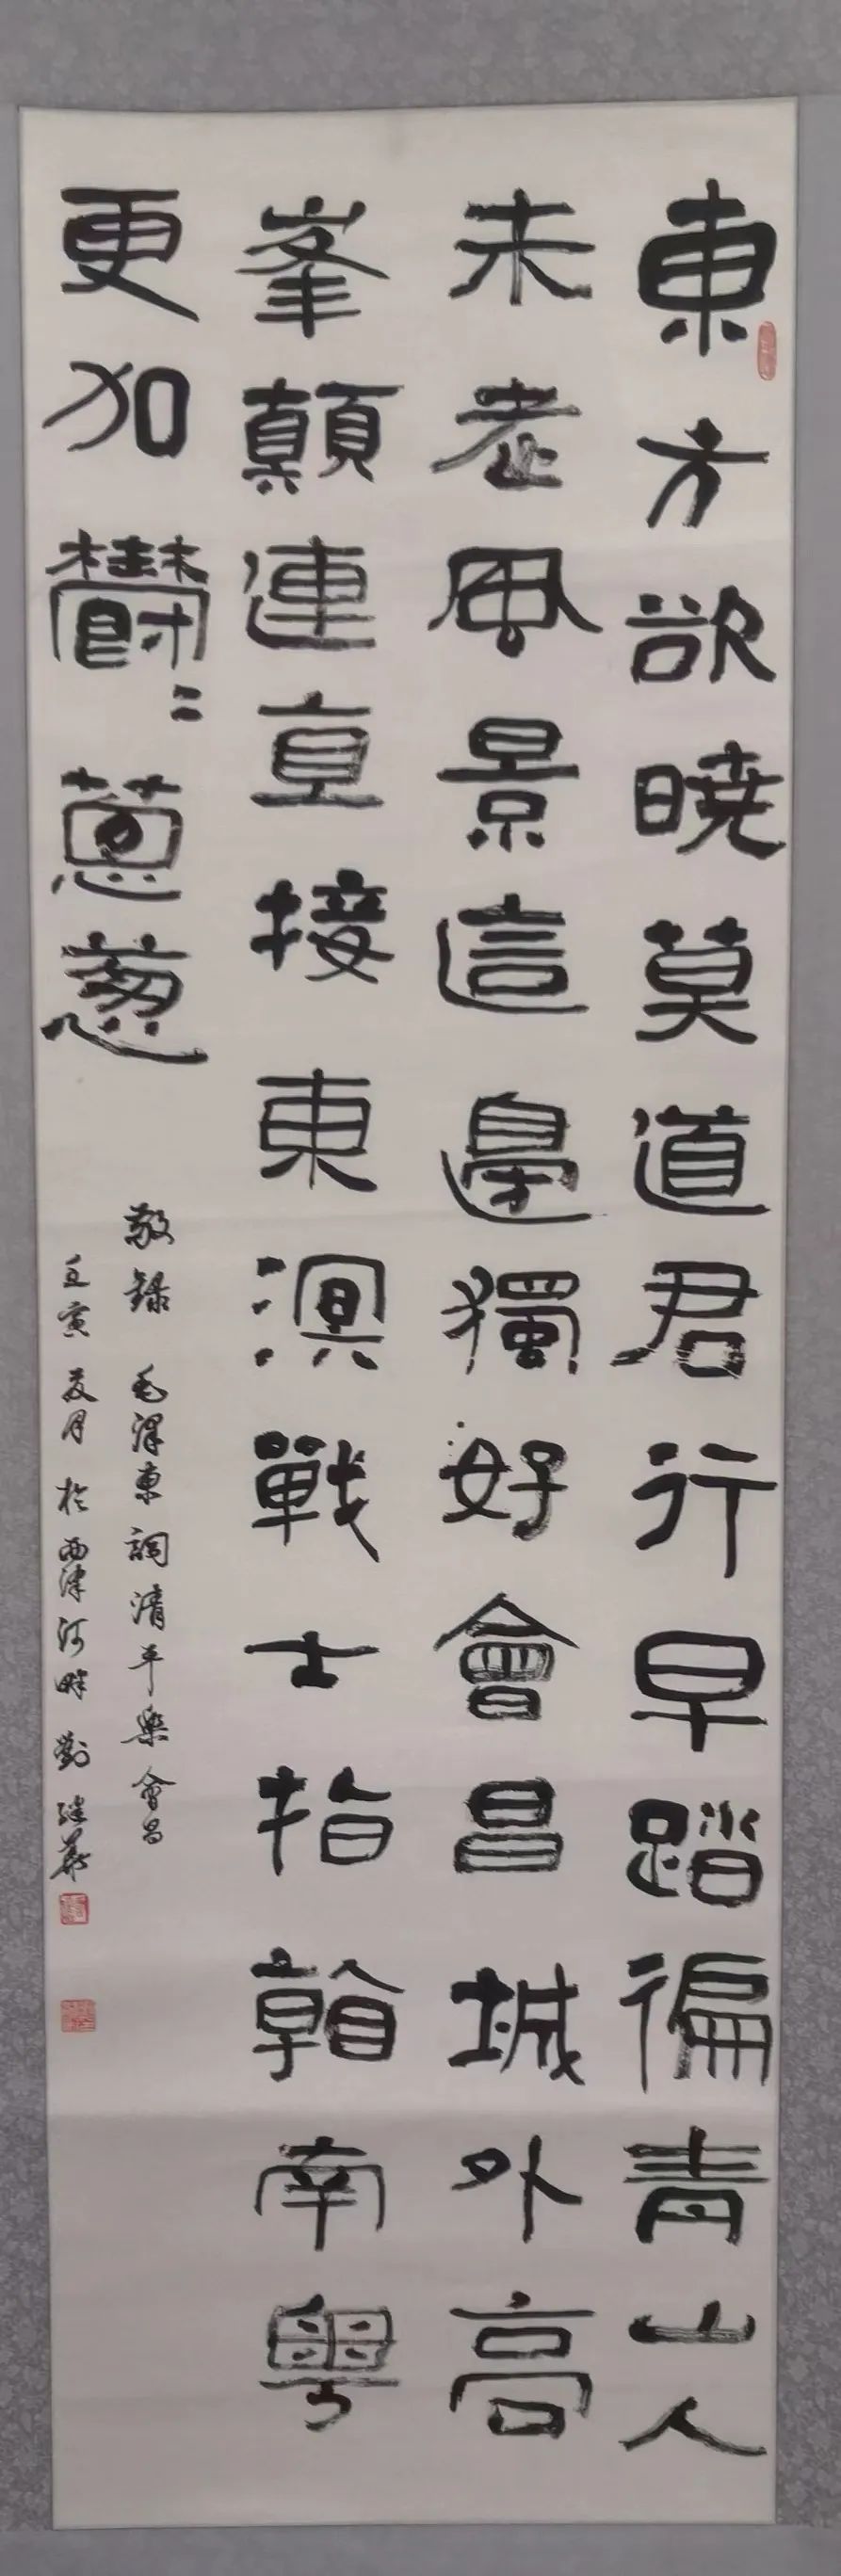 東方欲曉莫道君行早踏徧青山人
未老風景這邊獨好會昌城外高
峯顛連亘接東溟戰士指看南粤
更加鬱〻蔥蔥
敬録毛澤東詞清平樂會昌
壬寅夏月於西津河畔劉繼華